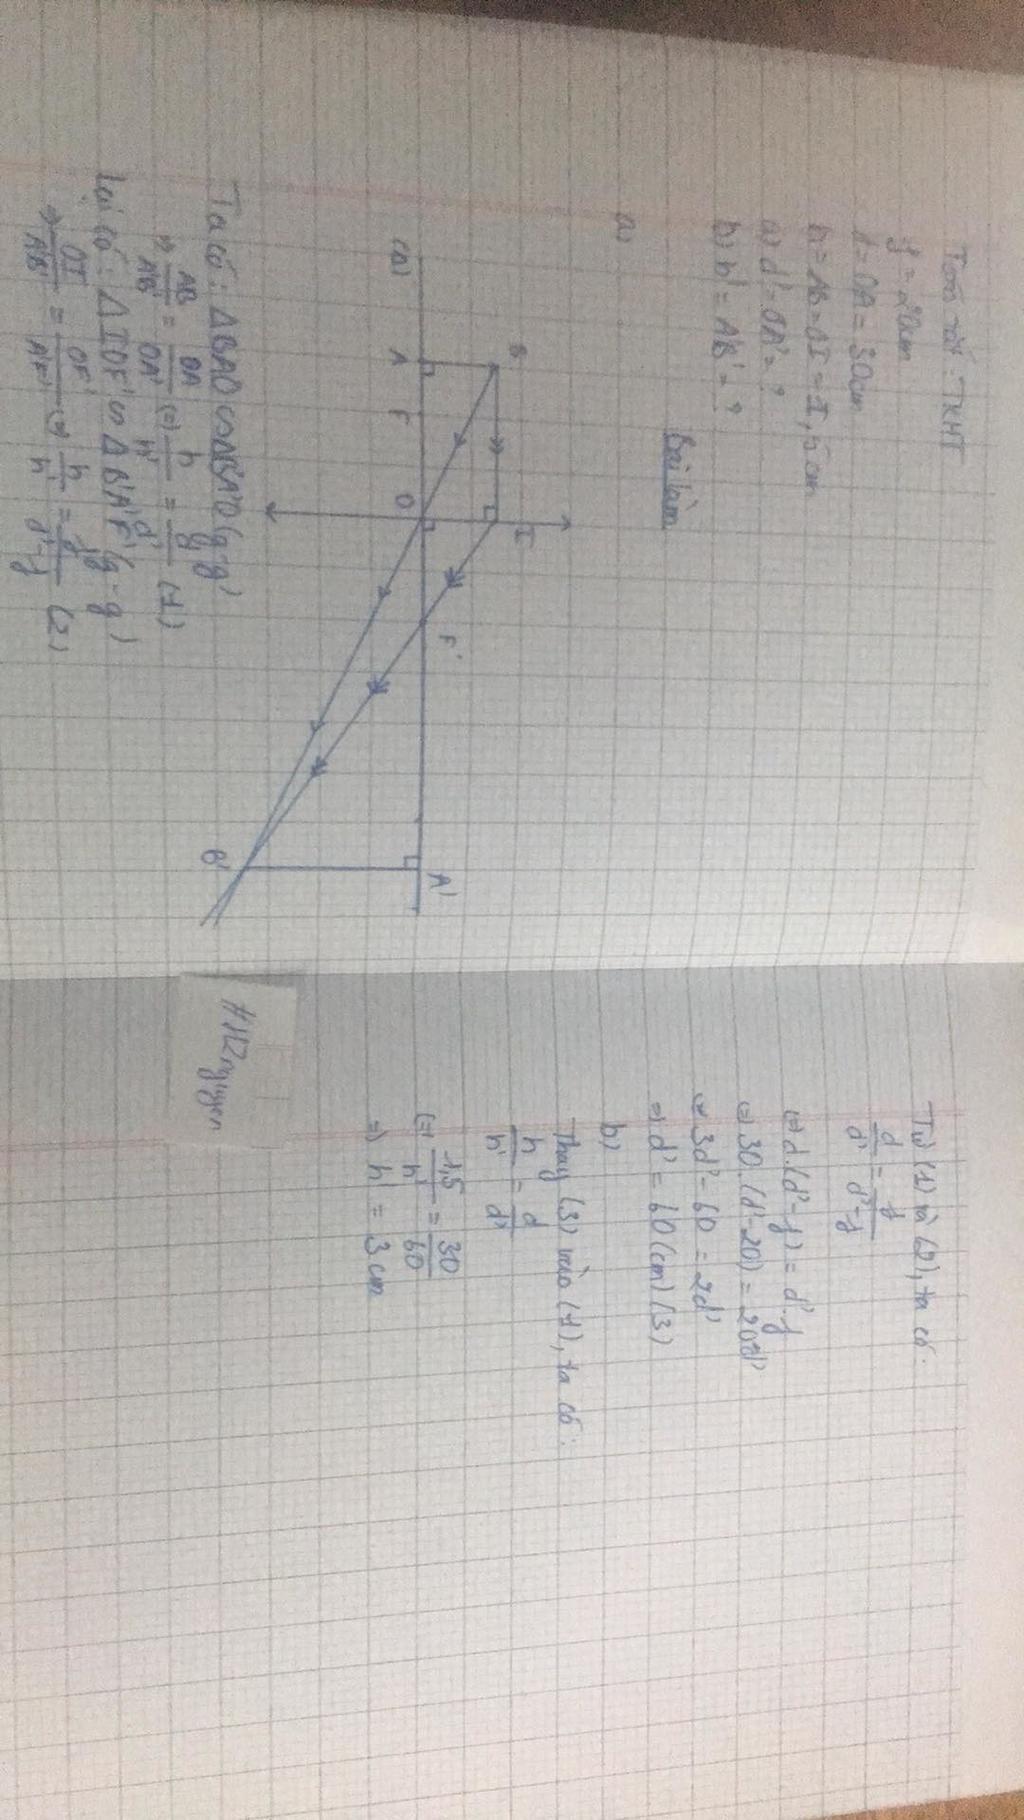 Tóm tắt: TKHT
f = 20cm
d = OA = 30cm
h = AB = OI = 1,5 cm
a) d' = OA' = ?
b) h' = A'B' = ?
Bài làm
a)
B
I
(Δ)
A
F
O
F'
A'
B'
Ta có: ΔBAO ∽ ΔB'A'O (g-g)
⇒ AB/A'B' = OA/OA' (=) h/h' = d/d' (1)
Lại có: ΔIOF' ∽ ΔB'A'F' (g-g)
⇒ OI/A'B' = OF'/A'F' (=) h/h' = f/d'-f (2)
Từ (1) và (2), ta có:
d/d' = f/d'-f
(=) d.(d'-f) = d'.f
(=) 30.(d'-20) = 20d'
(=) 3d'-60 = 2d'
=) d' = 60(cm) (3)
b)
Thay (3) vào (1), ta có:
h/h' = d/d'
(=) 1,5/h' = 30/60
=) h' = 3 cm